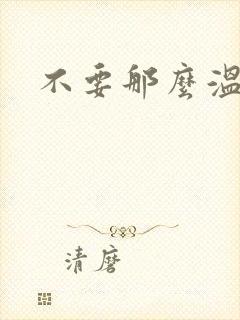 不要那麼溫
清磨